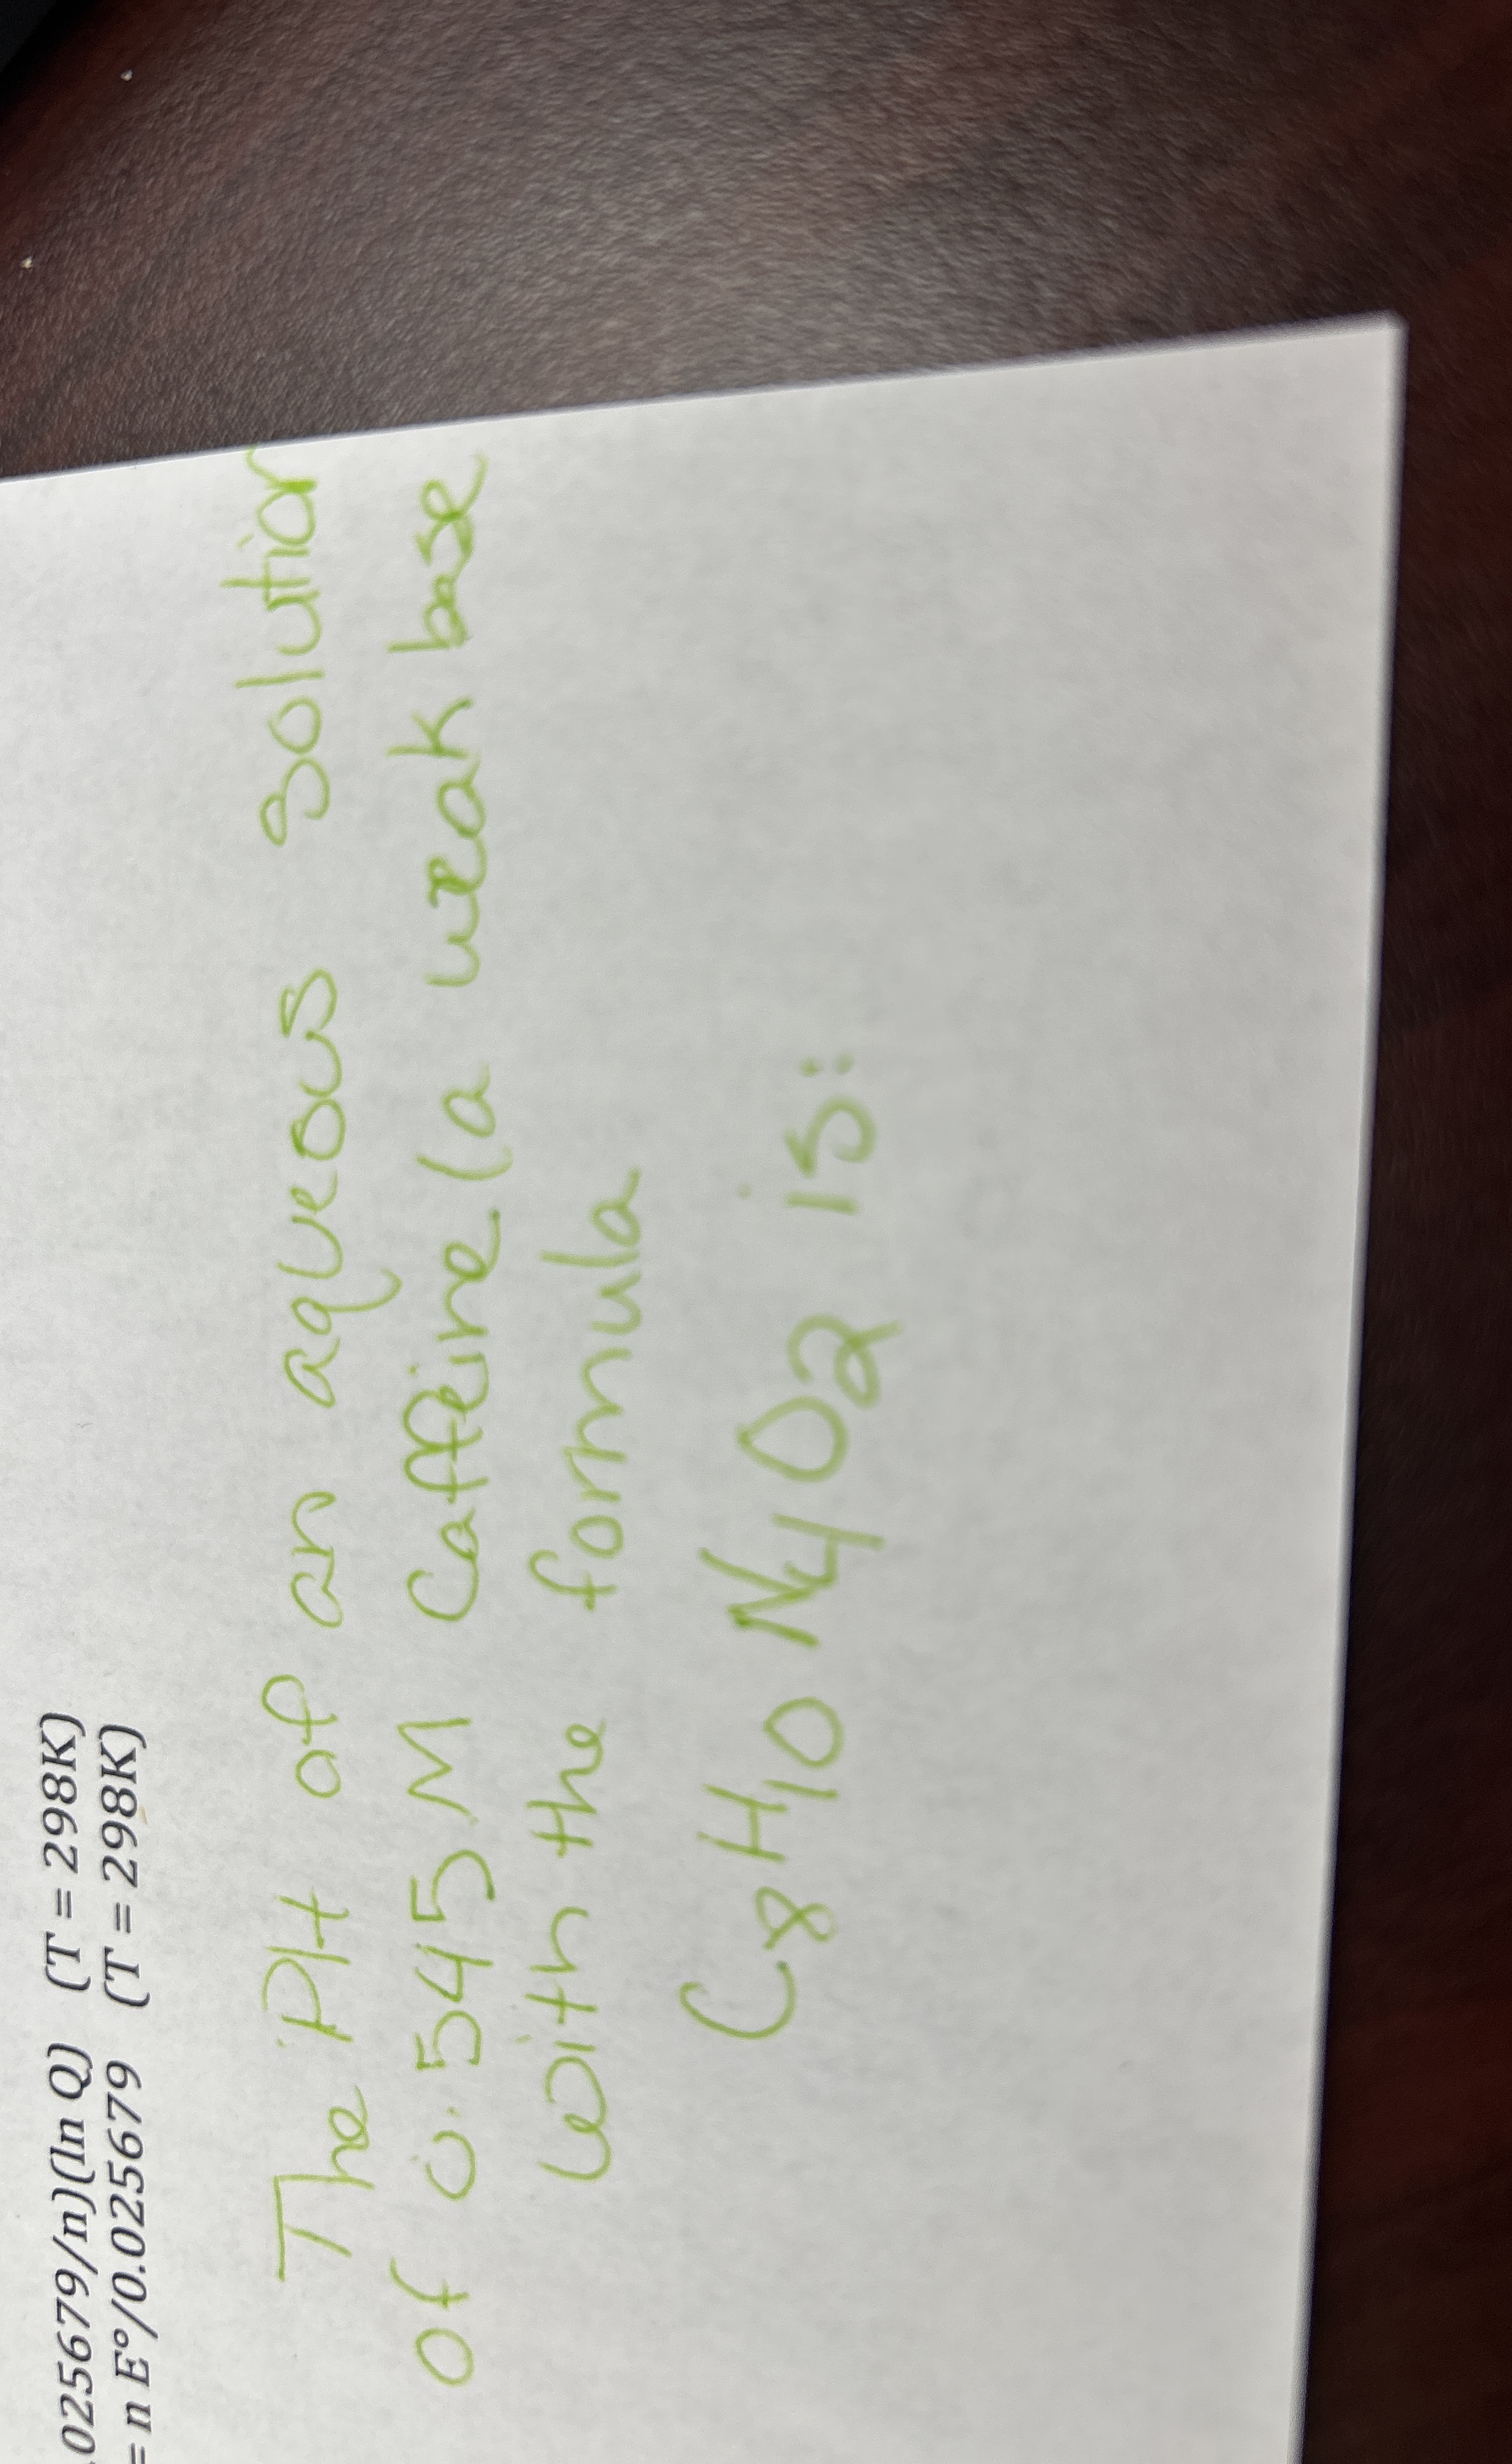 .025679/n)(ln Q) (T = 298K)
= n E°/0.025679 (T = 298K)
The PH of an aqueous solution
of 0.545 M Caffeine (a weak base
with the formula
C8H10N4O2 is: